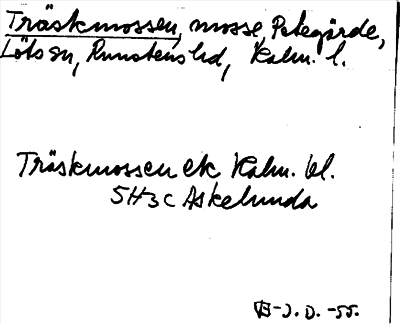 Träskmossen, mosse, Petegärde,
Löts sn, Runstens hd, Kalm. l.
Träskmossen ek Kalm. bl.
5H3c Askelunda
-J. D. -55.